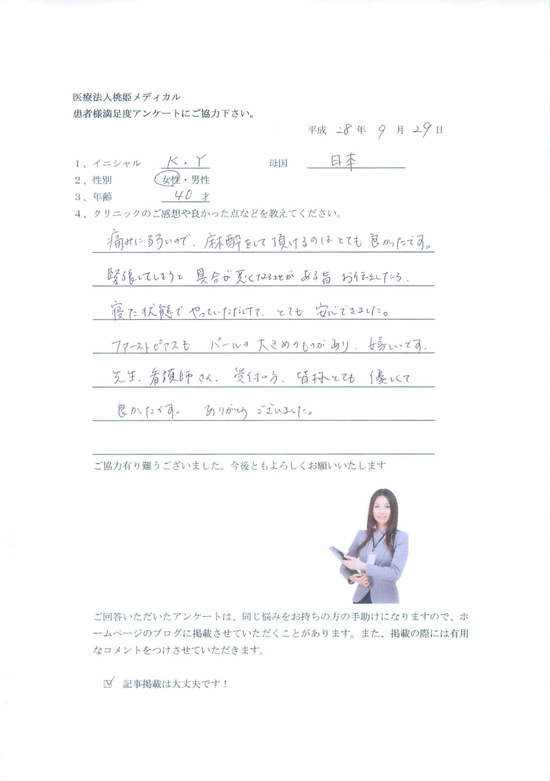 医療法人桃姫メディカル
患者様満足度アンケートにご協力下さい。
平成 28 年 9 月 29 日
1、イニシャル K・Y 母国 日本
2、性別 女性・男性
3、年齢 40 才
4、クリニックのご感想や良かった点などを教えてください。
痛みに弱いので、麻酔をして頂けるのはとても良かったです。
緊張してしまうと 具合が悪くなる事がある旨 お伝えしたら、
寝た状態でやっていただけて、とても 安心できました。
ファーストピアスも パールの大きめのものがあり、嬉しいです。
先生、看護師さん、受付の方、皆様とても 優しくて
良かったです。 ありがとうございました。
ご協力有り難うございました。今後ともよろしくお願いいたします
ご回答いただいたアンケートは、同じ悩みをお持ちの方の手助けになりますので、ホ
ームページのブログに掲載させていただくことがあります。また、掲載の際には有用
なコメントをつけさせていただきます。
☑ 記事掲載は大丈夫です！